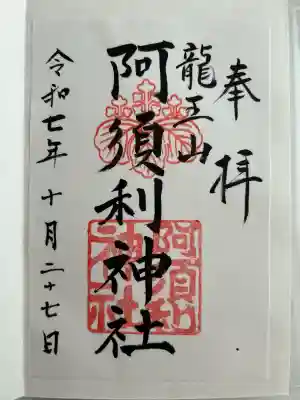 奉拝
龍王山
阿須利神社
令和七年十月二十七日
阿須利
神社